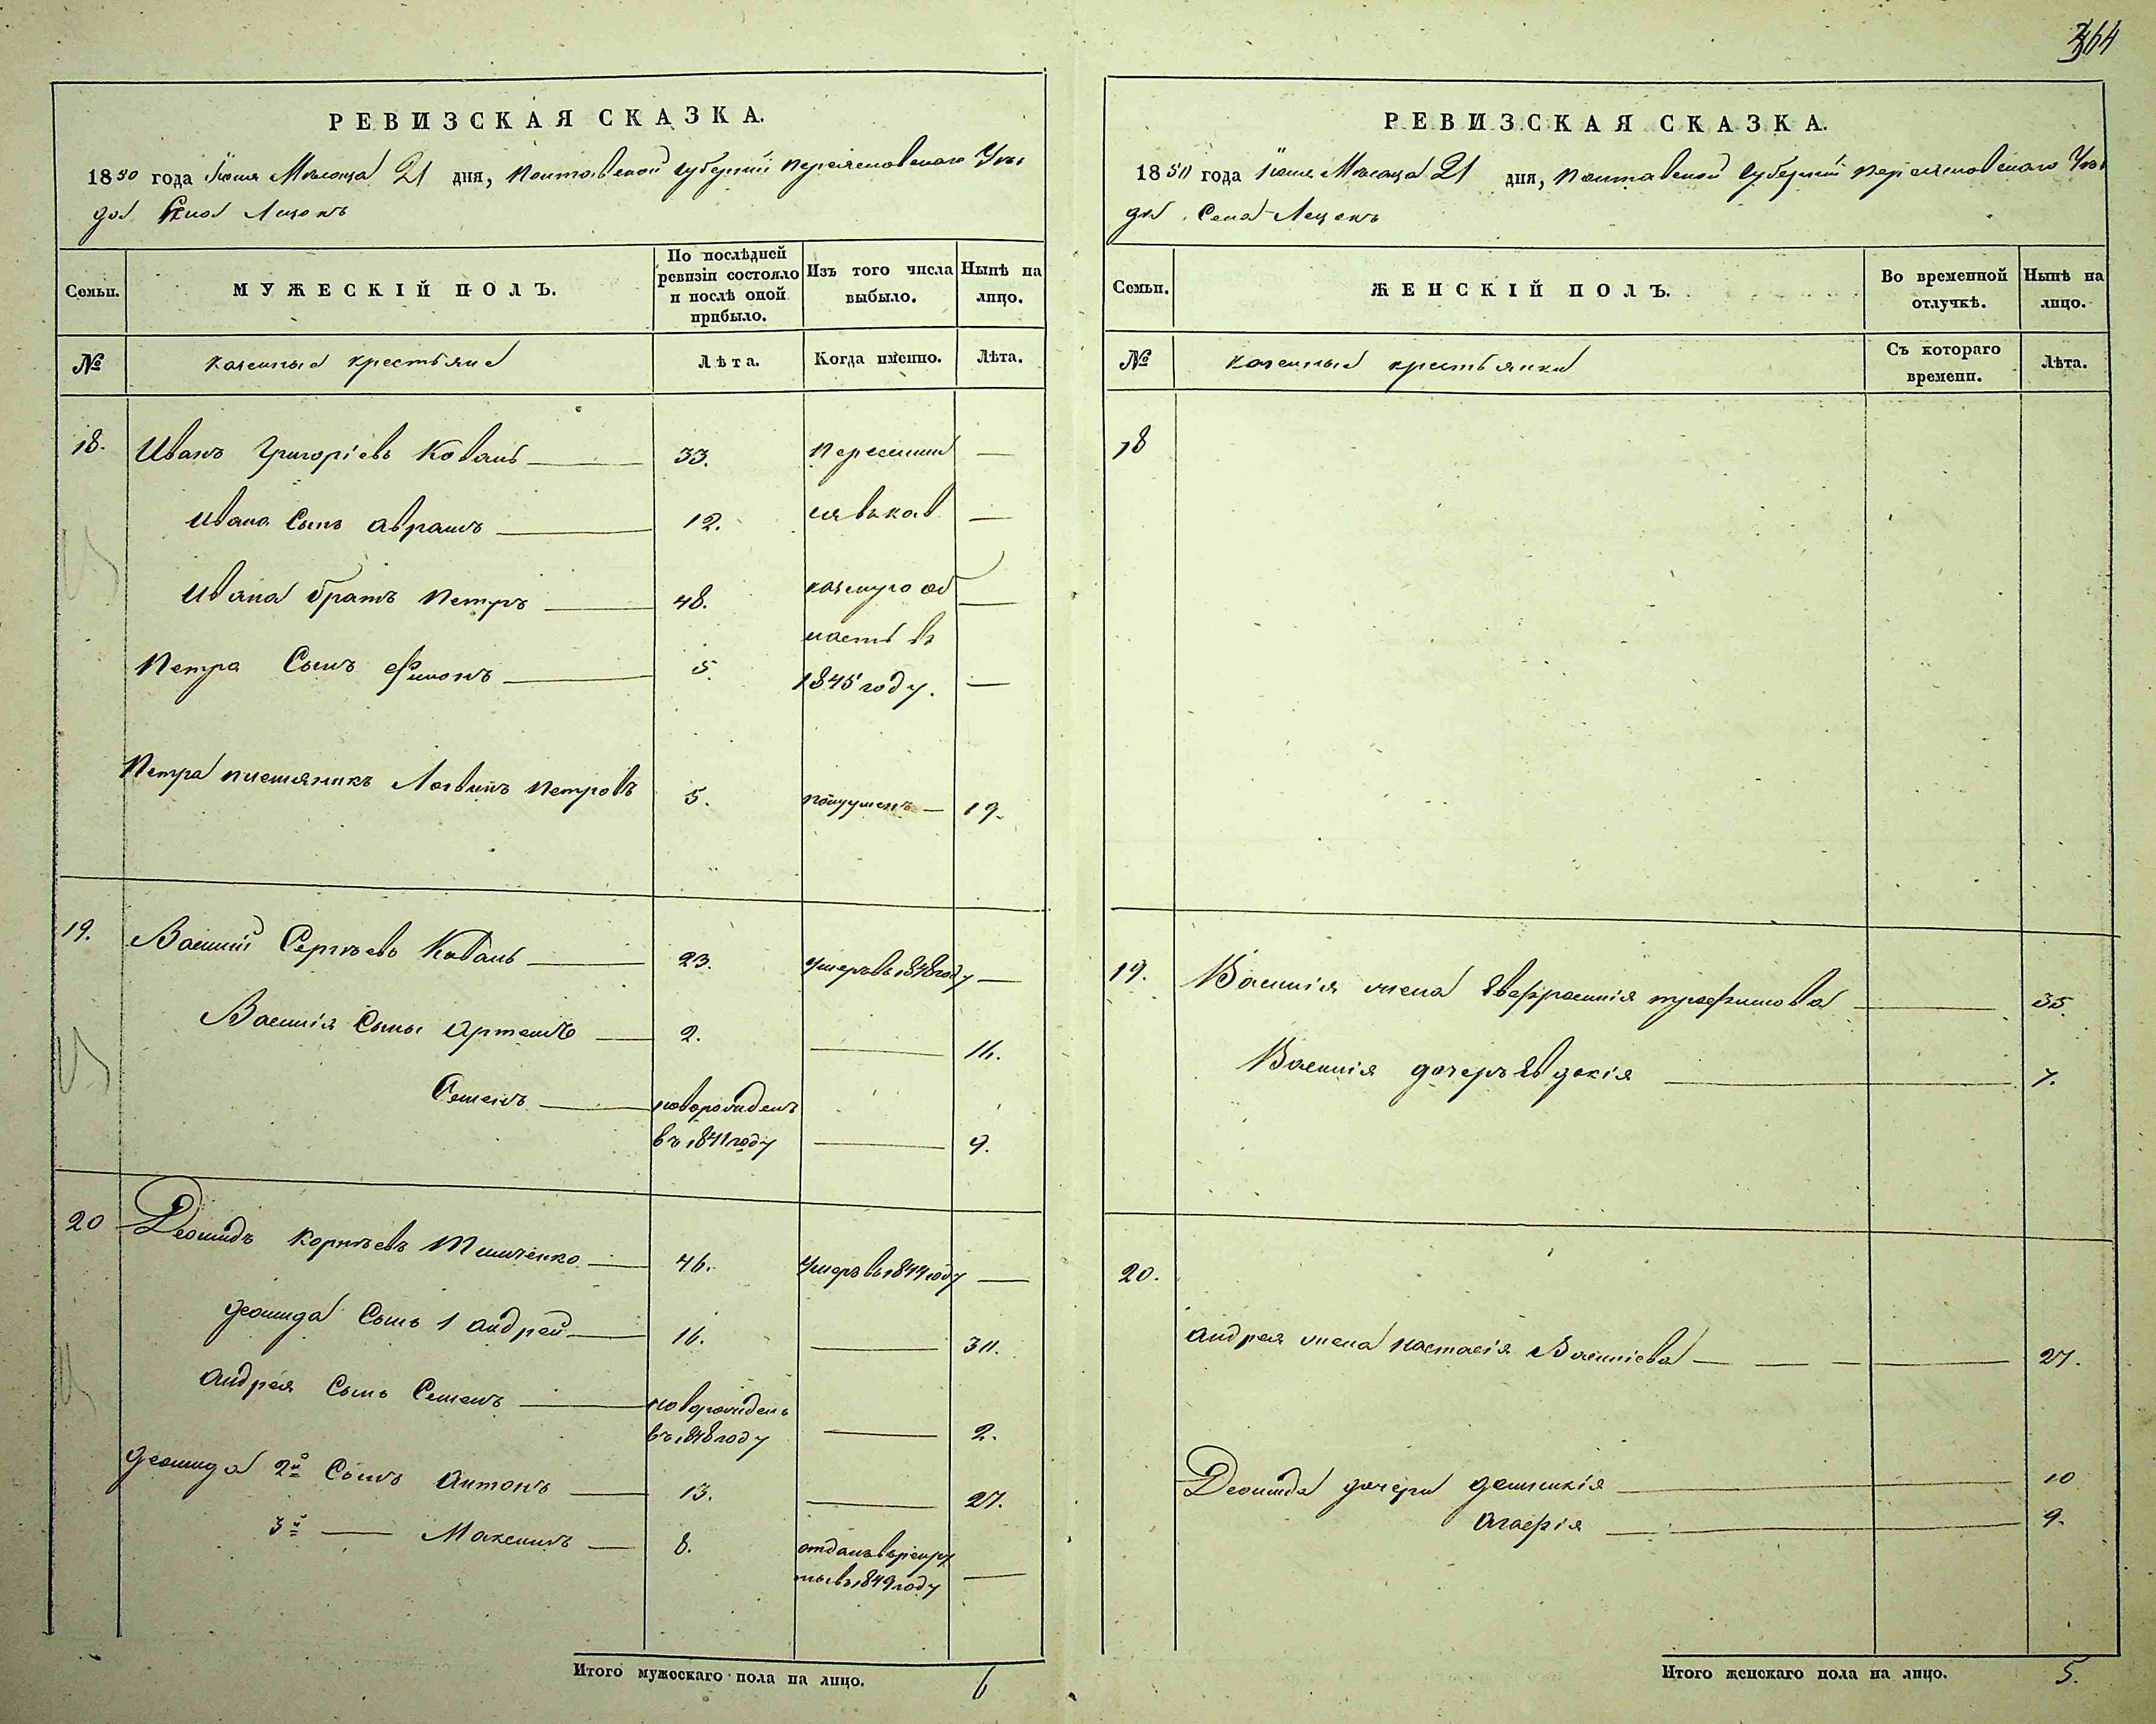 364
РЕВИЗСКАЯ СКАЗКА.
1850 года Іюня Месяца 21 дня, Полтавской губерніи Переяславскаго Уѣз
да Села Лецокъ
Семьи.
МУЖЕСКІЙ ПОЛЪ.
По послѣдней ревизіи состояло и послѣ оной прибыло.
Изъ того числа выбыло.
Нынѣ на лицо.
№
казенные крестьяне
Лѣта.
Когда именно.
Лѣта.
18. Иванъ Григоріевъ Коваль 33. Пересилил —
Ивана Сынъ Аврамъ 12. ся въ Кав —
Ивана братъ Петръ 48. казкую об —
ласть въ
Петра Сынъ Филонъ 5. 1845 году. —
Петра племяникъ Логвинъ Петровъ 5. 19.
19. Василій Сергѣевъ Коваль 23. Умеръ въ 1848 году —
Василія Сыны Артемъ 2. — 16.
Семенъ новорожденъ
въ 1841 году — 9.
20 Деомидъ Корнѣевъ Тимченко 46. Умеръ въ 1844 году —
Деомида Сынъ 1 Андрей 16. — 30.
Андрея Сынъ Семенъ новорожденъ
въ 1848 году — 2.
Деомида 2й Сынъ Антонъ 13. — 27.
3й — Максимъ 8. отданъ въ рекру
ты въ 1849 году —
Итого мужескаго пола на лицо. 6
РЕВИЗСКАЯ СКАЗКА.
1850 года Іюня Месяца 21 дня, Полтавской Губерніи Переяславскаго Уѣз
да Села Лецокъ
Семьи.
ЖЕНСКІЙ ПОЛЪ.
Во временной отлучкѣ.
Нынѣ на лицо.
№
казенные крестьянки
Съ котораго времени.
Лѣта.
18
19. Василія жена Евфросинія Трофимова 35.
Василія дочерь Евдокія 7.
20.
Андрея жена Настасія Василіева 27.
Деомида дочери Домникія 10
Агафія 9.
Итого женскаго пола на лицо. 5.